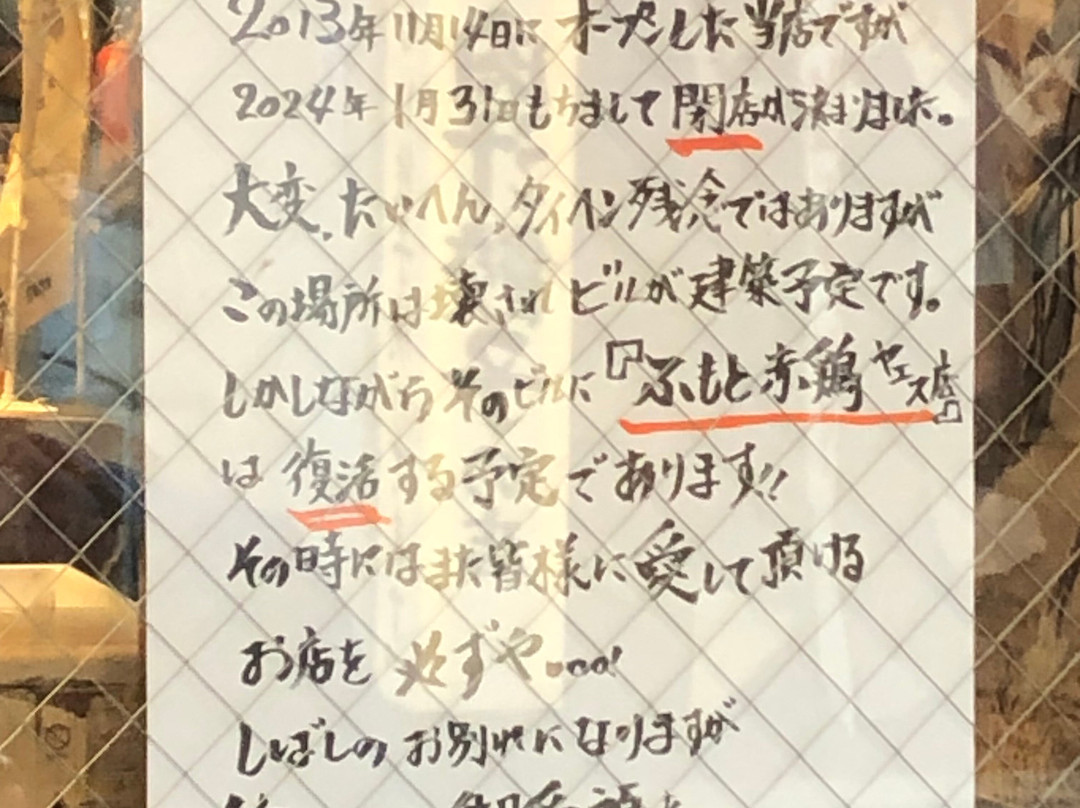 2013年11月14日に オープンした当店ですが
2024年 1月31日もちまして閉店が決まりました。
大変、たいへん、タイヘン残念ではありますが
この場所は壊され ビルが建築予定です。
しかしながら そのビルに 『ふもと赤鶏ヤエス店』
は 復活する予定であります!!
その時にはまた皆様に愛して頂ける
お店を 必ずや。。。!
しばしの お別れになりますが